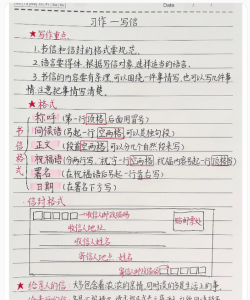 Date
习作一写信
★写作重点
1.书信和信封的格式要规范.
2.语言要得体.根据写信对象,选择适当的语言.
3.书信的内容要有条理.可以围绕一件事情写,也可以写几件事
情.注意把事情写清楚.
★格式
书信格式
称呼(第一行顶格后面用冒号)
问候语(另起一行空两格可以是独句段)
正文(段前空两格可以分几个自然段来写)
祝福语(分两行写,祝当一行空两格祝福内容另起一行顶格)
署名(在祝福语后另起一行靠右写)
日期(在署名下方写)
信封格式
收信人邮政编码
贴邮票处
收信人地址
收信人姓名
寄信人地址 姓名
寄信人邮政编码
★给亲人的信:大多包含着浓浓的亲情,同时谈的多是生活上的事.